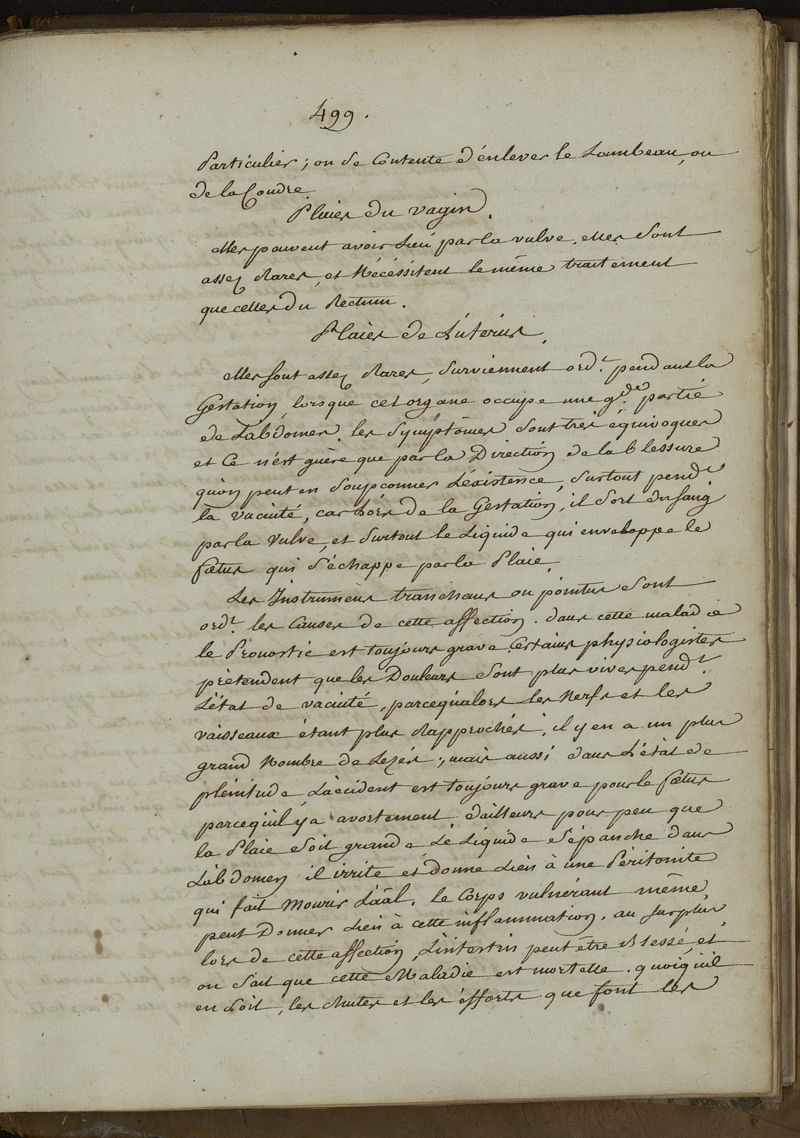 499.
Particulier; on se Contente d'énlever le Lambeau, ou
de la Coudre.
Plaies du vagin.
elles peuvent avoir Lieu par la vulve, elles Sont
assez Rares, et Nécéssitent le même traitement
que celles du Rectum.
Plaies de L'uterus.
elles sont assez Rares, Surviennent ord.t pendant la
Gestation, lorsque cet organe occupe une g.de partie
de L'abdomen. les Symptômes Sont très équivoques
et Ce n'est guère que par la Direction de la blessure
qu'on peut en Soupçonner L'éxistence, Surtout pend.t
la vacuité, car Lors de la Gestation, il Sort du Sang
par la Vulve, et Surtout le Liquide qui enveloppe le
fœtus qui S'échappe par la Plaie.
Les Instrumens tranchans ou pointus Sont
ord.t les Causes de cette affection. dans cette maladie
le Pronostic est toujours grave. Certains physiologistes
prétendent que les Douleurs Sont plus vives pend.t
L'état de vacuité, parcequ'alors les Nerfs et les
vaisseaux étant plus Rapprochés, il y en a un plus
grand Nombre de Lezés; mais aussi dans L'état de
plénitude L'accident est toujours grave pour le fœtus
parcequ'il y a avortement. d'ailleurs pour peu que
la Plaie Soit grande Le Liquide S'épanche dans
L'abdomen il irrite et donne Lieu à une Péritonite
qui fait Mourir L'aâl. le Corps vulnérant même
peut Donner Lieu à cette inflammation. au Surplus
lors de cette affection, L'intestin peut être Blessé, et
on Sait que cette Maladie est mortelle. quoiqu'il
en Soit, les chutes et les éfforts que font les